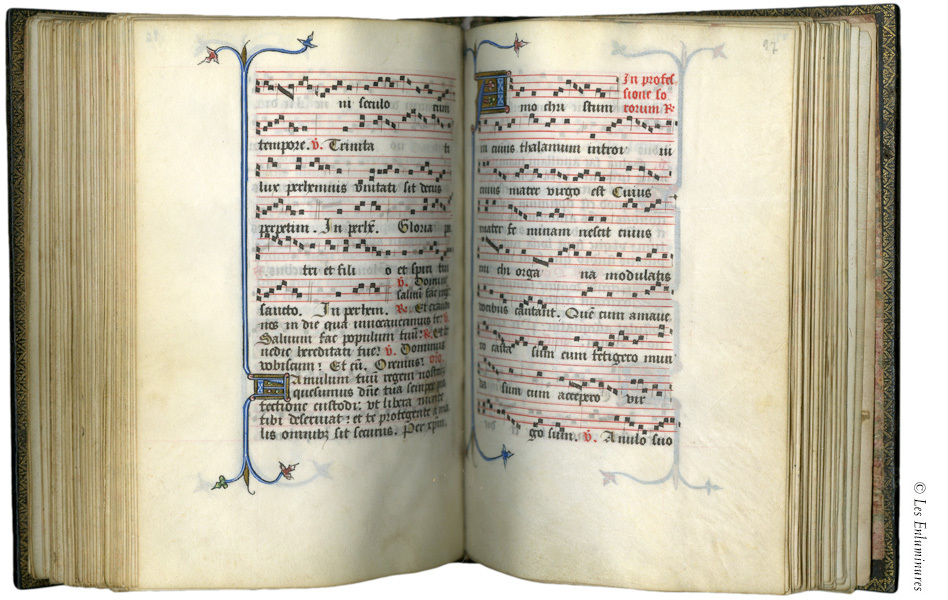 ni seculo rum
tempore. v. Trinita ti
lux perhennis unitati sit decus
perpetim. In perh. Gloria pa
tri et fili o et spiri tui
sancto. In perhen. v. Domine
salvum fac regē
R. Et exaudi
nos in die qua invocaverimus te. v.
Salvum fac populum tuū. R. Et be
nedic hereditati tue. v. Dominus
vobiscum. Et cū. Oremus. oro.
Famulum tuū regem nostrū
quesumus dñe tua semper pro
tectione custodi: ut libera mente
tibi deserviat: et te protegente a ma
lis omnibz sit securus. Per xpm.
97
In profes
sione so
rorum R.
A mo chri stum
in cuius thalamum introi vi
cuius mater virgo est Cuius
pater fe minam nescit cuius
mi chi orga na modulatis
vocibus cantant. Quē cum amave
ro casta sum cum tetigero mun
da sum cum accepero vir
go sum. v. Anulo suo
© Les Enluminures